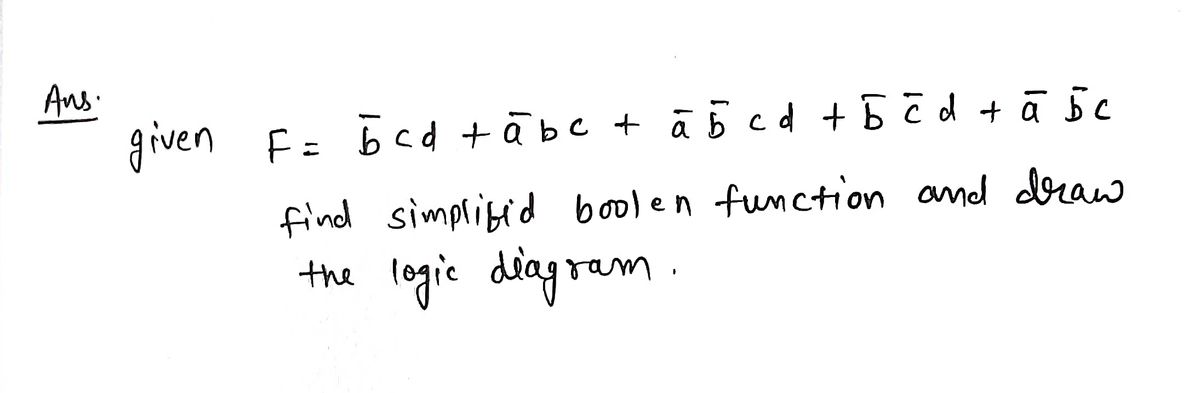 Ans.
given F = b̅cd + a̅bc + a̅b̅cd + b̅c̅d + a̅b̅c
find simplifid boolen function and draw
the logic diagram.